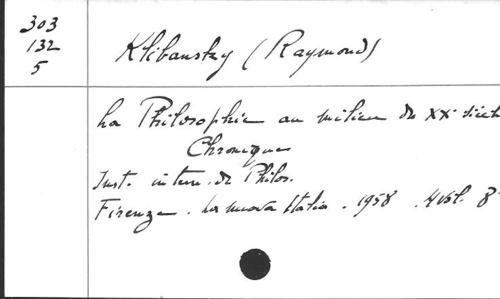 303
132
5
Klibansky (Raymond)
La Philosophie au milieu du XXe siècle
Chroniques
Inst. intern. de Philos.
Firenze. La nuova Italia. 1958. 4 vol. 8°